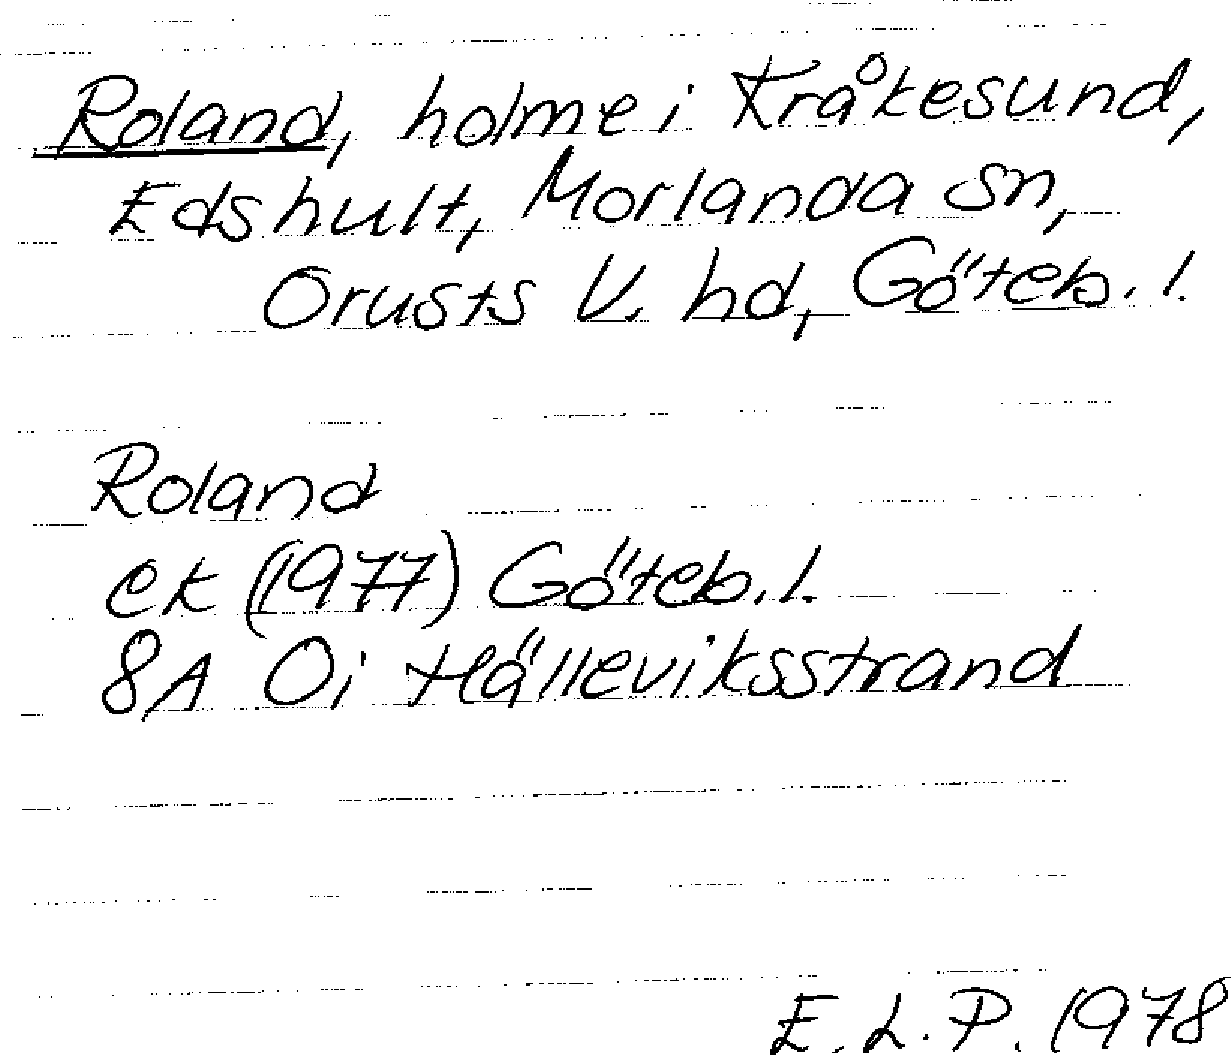 Roland, holme i Kråkesund,
Edshult, Morlanda sn,
Orusts V. hd, Göteb. l.
Roland
ek (1977) Göteb. l.
8A 0i Hälleviksstrand
E. L. P. 1978